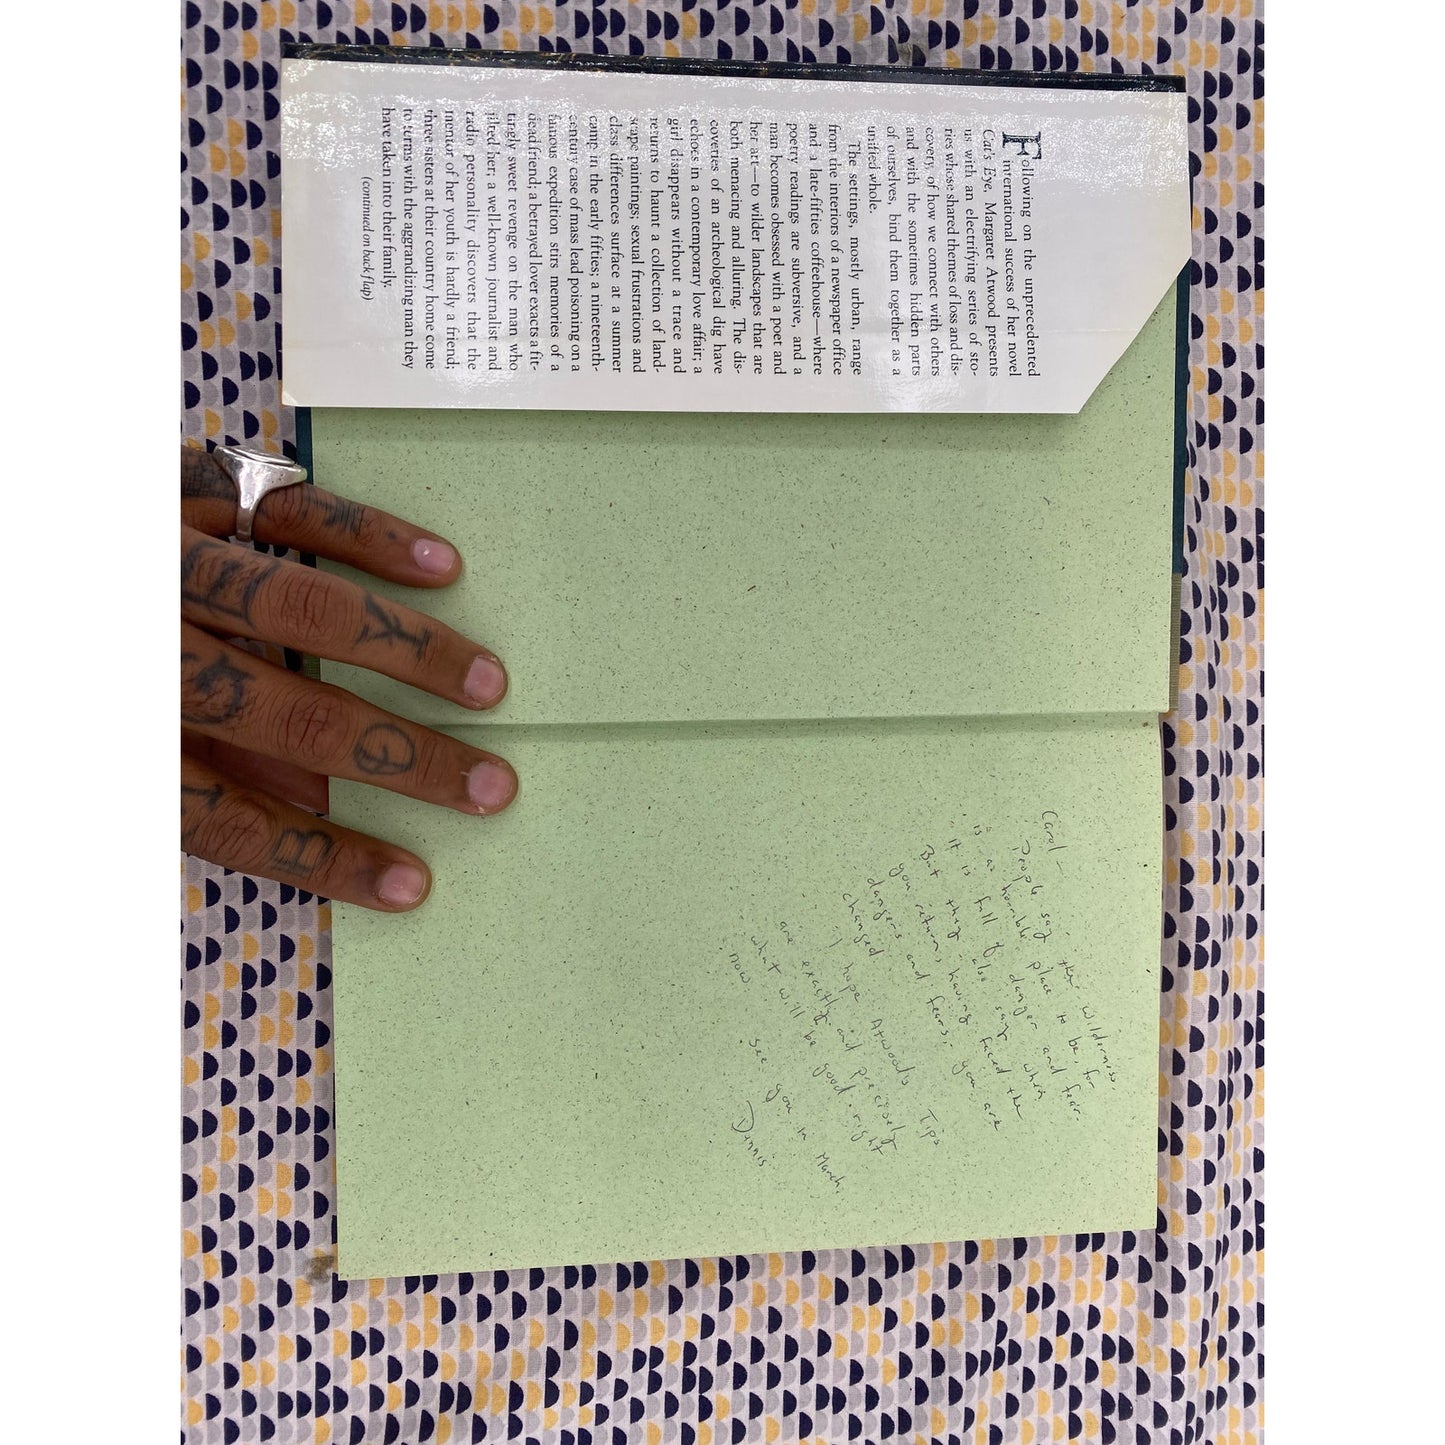 Following on the unprecedented
international success of her novel
Cat's Eye, Margaret Atwood presents
us with an electrifying series of sto-
ries whose shared themes of loss and dis-
covery, of how we connect with others
and with the sometimes hidden parts
of ourselves, bind them together as a
unified whole.
The settings, mostly urban, range
from the interiors of a newspaper office
and a late-fifties coffeehouse—where
poetry readings are subversive, and a
man becomes obsessed with a poet and
her art—to wilder landscapes that are
both menacing and alluring. The dis-
coveries of an archeological dig have
echoes in a contemporary love affair; a
girl disappears without a trace and
returns to haunt a collection of land-
scape paintings; sexual frustrations and
class differences surface at a summer
camp in the early fifties; a nineteenth-
century case of mass lead poisoning on a
famous expedition stirs memories of a
dead friend; a betrayed lover exacts a fit-
tingly sweet revenge on the man who
jilted her; a well-known journalist and
radio personality discovers that the
mentor of her youth is hardly a friend;
three sisters at their country home come
to terms with the aggrandizing man they
have taken into their family.
(continued on back flap)
Carol —
People say the wilderness
is a horrible place to be, for
it is full of danger and fear.
But they also say when
you return, having faced the
dangers and fears, you are
changed.
I hope Atwood's Tips
are exactly and precisely
what will be good right
now. See you in March,
Dennis